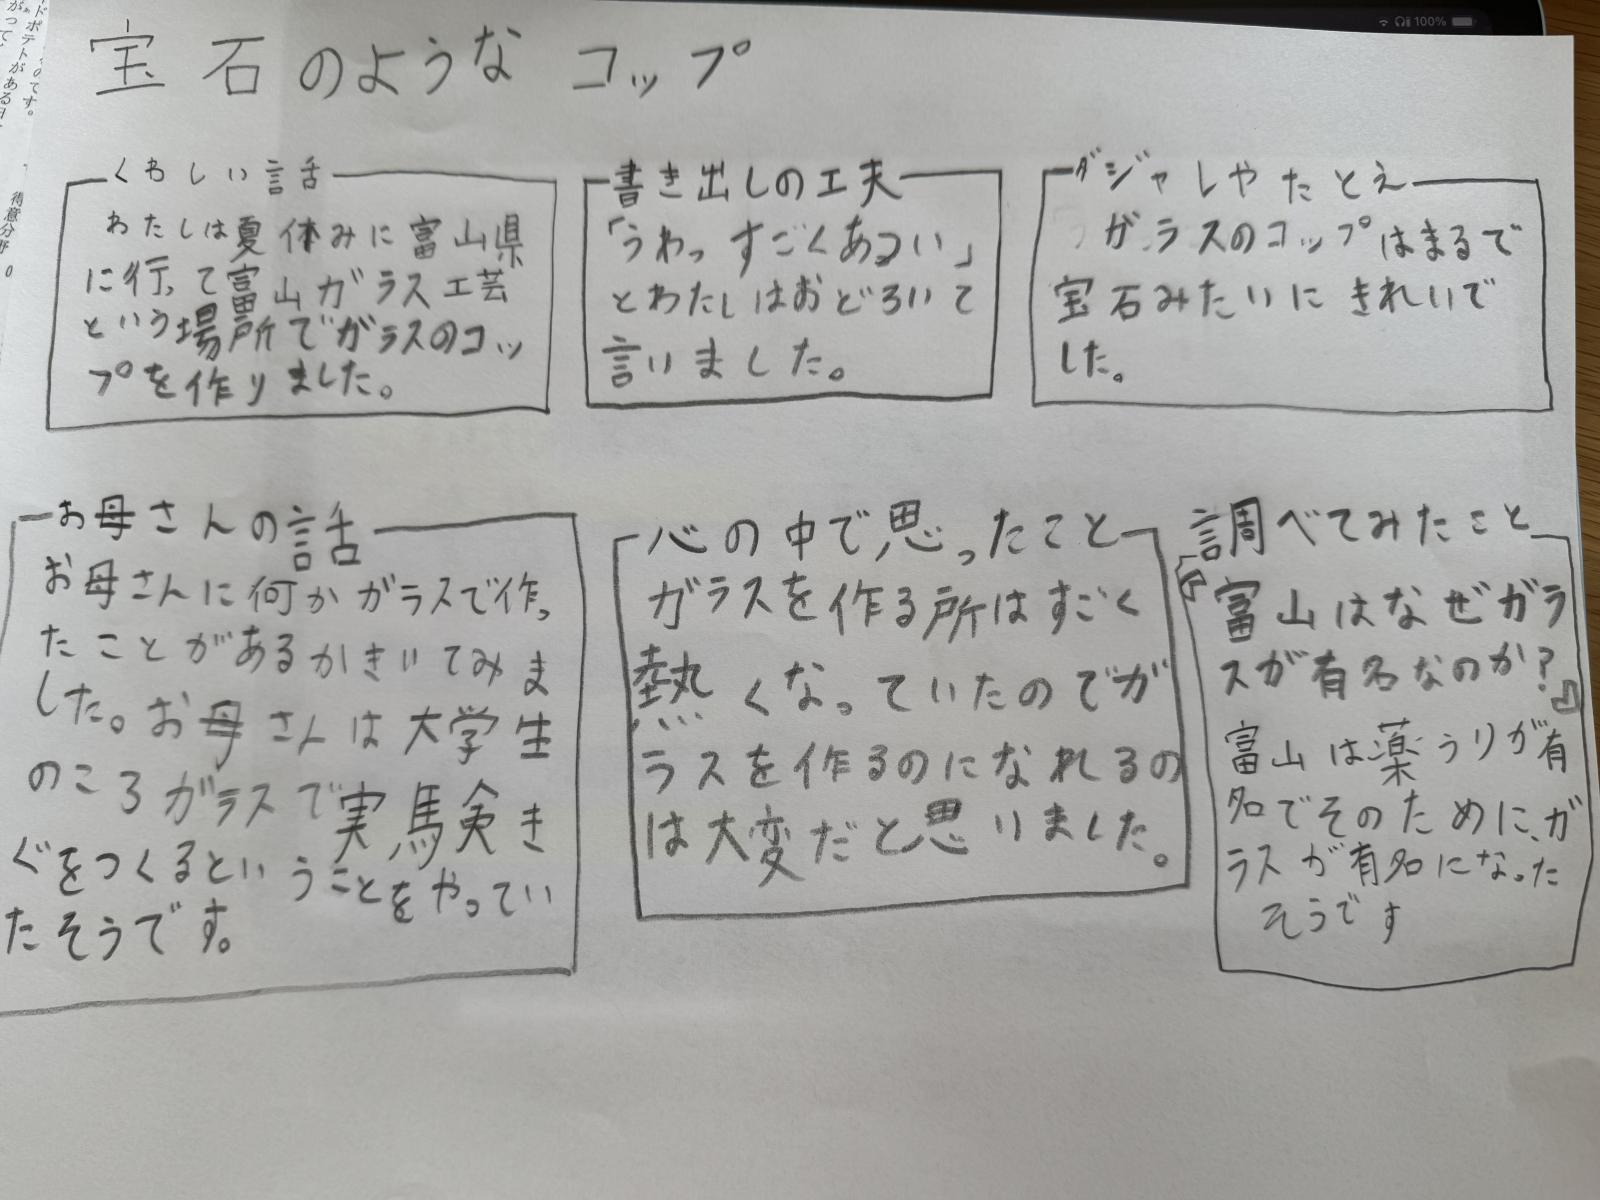 宝石のような コップ
くわしい話
わたしは夏休みに富山県
に行って富山ガラス工芸
という場所でガラスのコッ
プを作りました。
書き出しの工夫
「うわっすごくあつい」
とわたしはおどろいて
言いました。
ダジャレやたとえ
ガラスのコップはまるで
宝石みたいにきれいで
した。
お母さんの話
お母さんに何かガラスで作っ
たことがあるかきいてみま
した。お母さんは大学生
のころガラスで実験き
ぐをつくるということをやってい
たそうです。
心の中で思ったこと
ガラスを作る所はすごく
熱くなっていたのでガ
ラスを作るのになれるの
は大変だと思いました。
調べてみたこと
『富山はなぜガラ
スが有名なのか?』
富山は薬うりが有
名でそのために、ガ
ラスが有名になった
そうです
100%
のです。
ドポテトがある日
がって、
得意分野
0